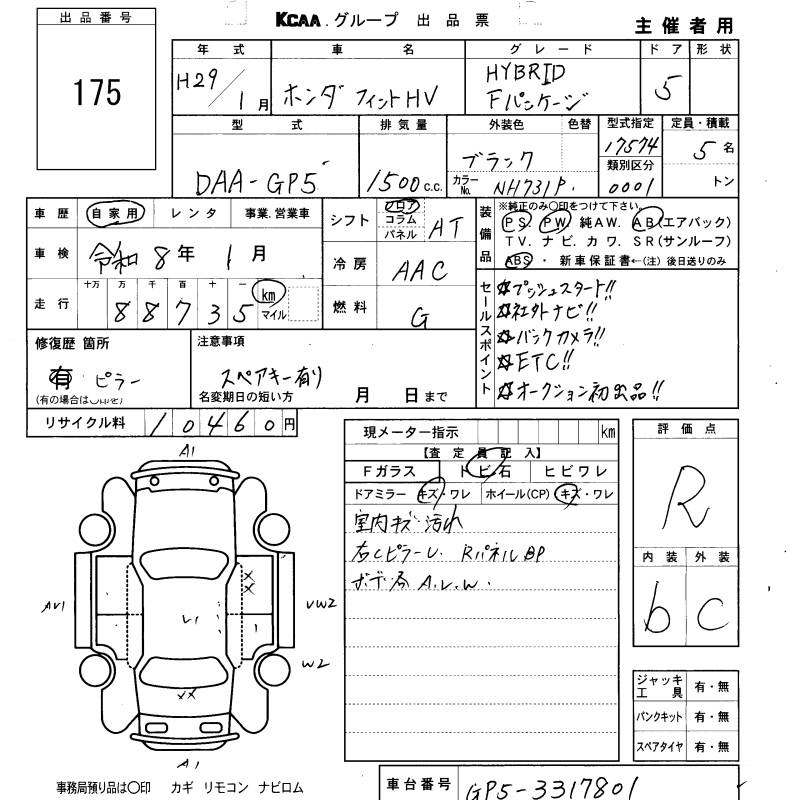 KCAA.グループ 出品票
主催者用
出品番号
175
年式 車名 グレード ドア 形状
H29/1月 ホンダ フィットHV HYBRID Fパッケージ 5
型式 排気量 外装色 色替 型式指定 定員・積載
DAA-GP5 1500c.c. ブラック 17574 5名
カラーNo. NH731P. 類別区分 0001 トン
車歴 自家用 レンタ 事業.営業車
車検 令和8年1月
走行 十万 万 千 百 十 一 km マイル
88735
シフト フロア コラム パネル AT
冷房 AAC
燃料 G
装備品
※純正のみ○印をつけて下さい。
PS. PW. 純AW. AB(エアバック)
TV. ナビ. カワ. SR(サンルーフ)
ABS・新車保証書←(注)後日送りのみ
修復歴 箇所
有 ピラー
(有の場合は
注意事項
スペアキー有り
名変期日の短い方 月 日まで
セールスポイント
☆プッシュスタート!!
☆社外ナビ!!
☆バックカメラ!!
☆ETC!!
☆オークション初出品!!
リサイクル料 10460円
現メーター指示 km
【査定員記入】
Fガラス トビ石 ヒビワレ
ドアミラー キズ・ワレ ホイール(CP) キズ・ワレ
室内キズ・汚れ
右CピラーU. RパネルBP
ボデー各A.U.W.
評価点
R
内装 外装
b C
A1
AV1
V1
XX
VW2
W2
XX
A1
ジャッキ工具 有・無
パンクキット 有・無
スペアタイヤ 有・無
事務局預り品は○印 カギ リモコン ナビロム
車台番号 GP5-3317801